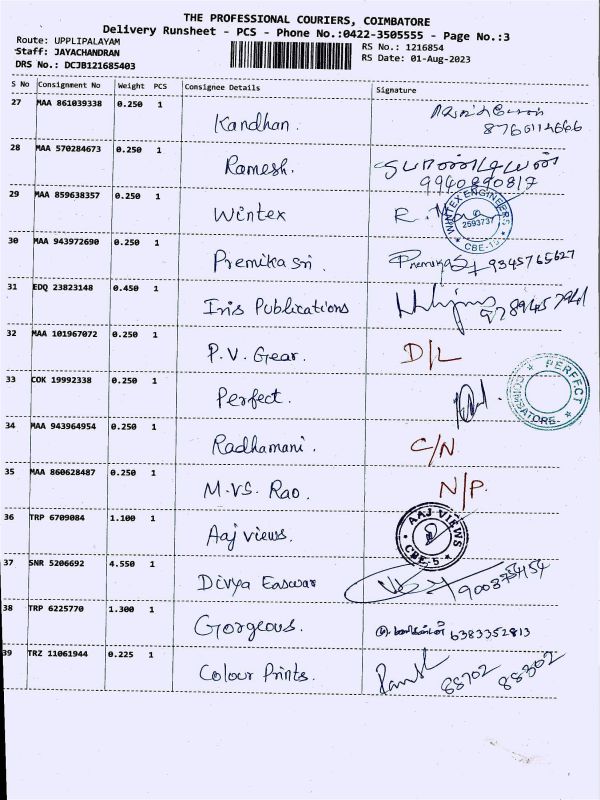 THE PROFESSIONAL COURIERS, COIMBATORE
Delivery Runsheet - PCS - Phone No.:0422-3505555 - Page No.:3
Route: UPPLIPALAYAM
Staff: JAYACHANDRAN
DRS No.: DCJB121685403
RS No.: 1216854
RS Date: 01-Aug-2023
S No Consignment No Weight PCS Consignee Details Signature
27 MAA 861039338 0.250 1 Kandhan.
28 MAA 570284673 0.250 1 Ramesh. 9940890817
29 MAA 859638357 0.250 1 Wintex WINTEX ENGINEERS 2593737 CBE-15
30 MAA 943972690 0.250 1 Premika sri. 9345765627
31 EDQ 23823148 0.450 1 Iris Publications
32 MAA 101967072 0.250 1 P.V. Gear. D/L
33 COK 19992338 0.250 1 Perfect. PERFECT COIMBATORE
34 MAA 943964954 0.250 1 Radhamani. C/N
35 MAA 860628487 0.250 1 M.VS. Rao. N/P.
36 TRP 6709084 1.100 1 Aaj views. AAJ VIEWS CBE-5
37 SNR 5206692 4.550 1 Divya Easwar
38 TRP 6225770 1.300 1 Gorgeous. 6383352813
39 TRZ 11061944 0.225 1 Colour Prints. 88702 88302